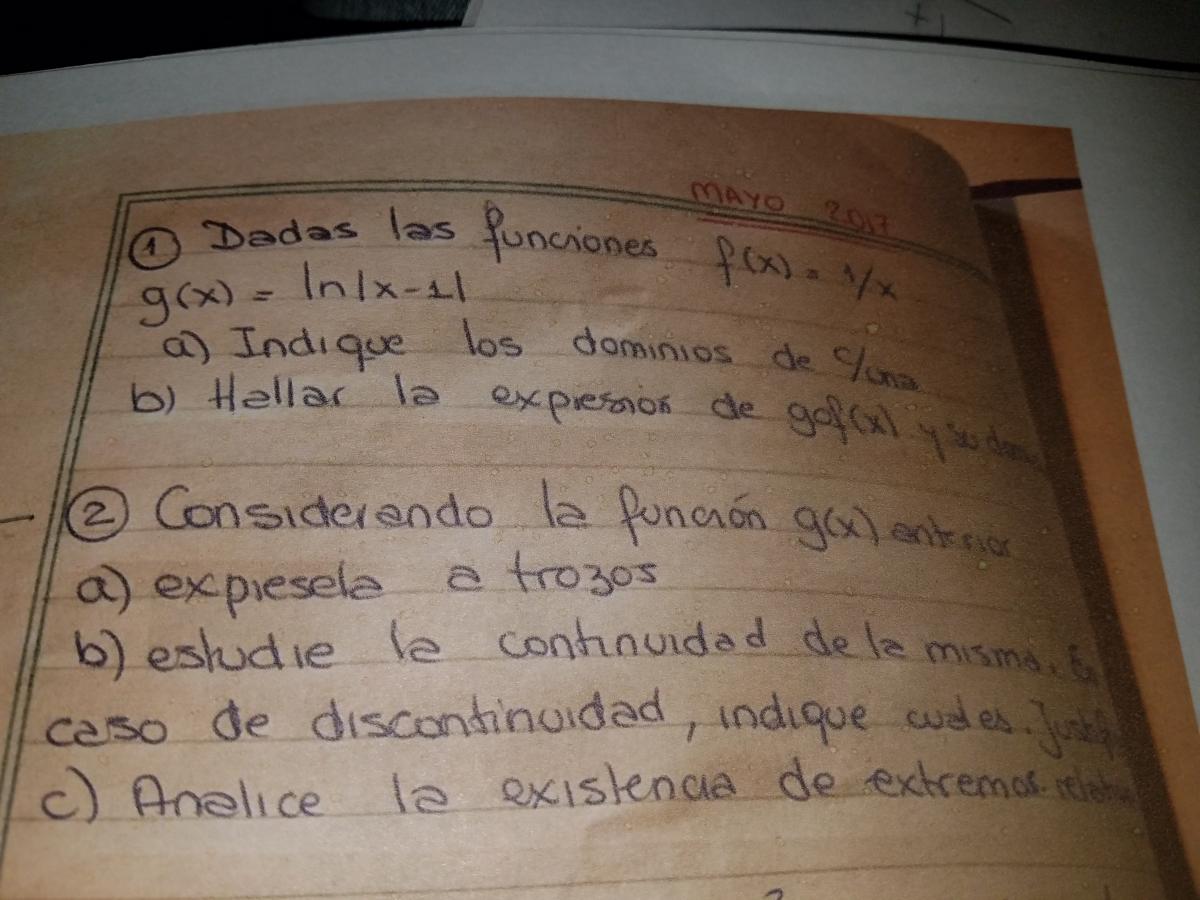 MAYO 2017
① Dadas las funciones f(x) = 1/x
g(x) = ln|x-1|
a) Indique los dominios de c/una
b) Hallar la expresion de gof(x) y su
② Considerando la función g(x) anterior
a) expresela a trozos
b) estudie la continuidad de la misma.
caso de discontinuidad, indique cual es.
c) Analice la existencia de extremos